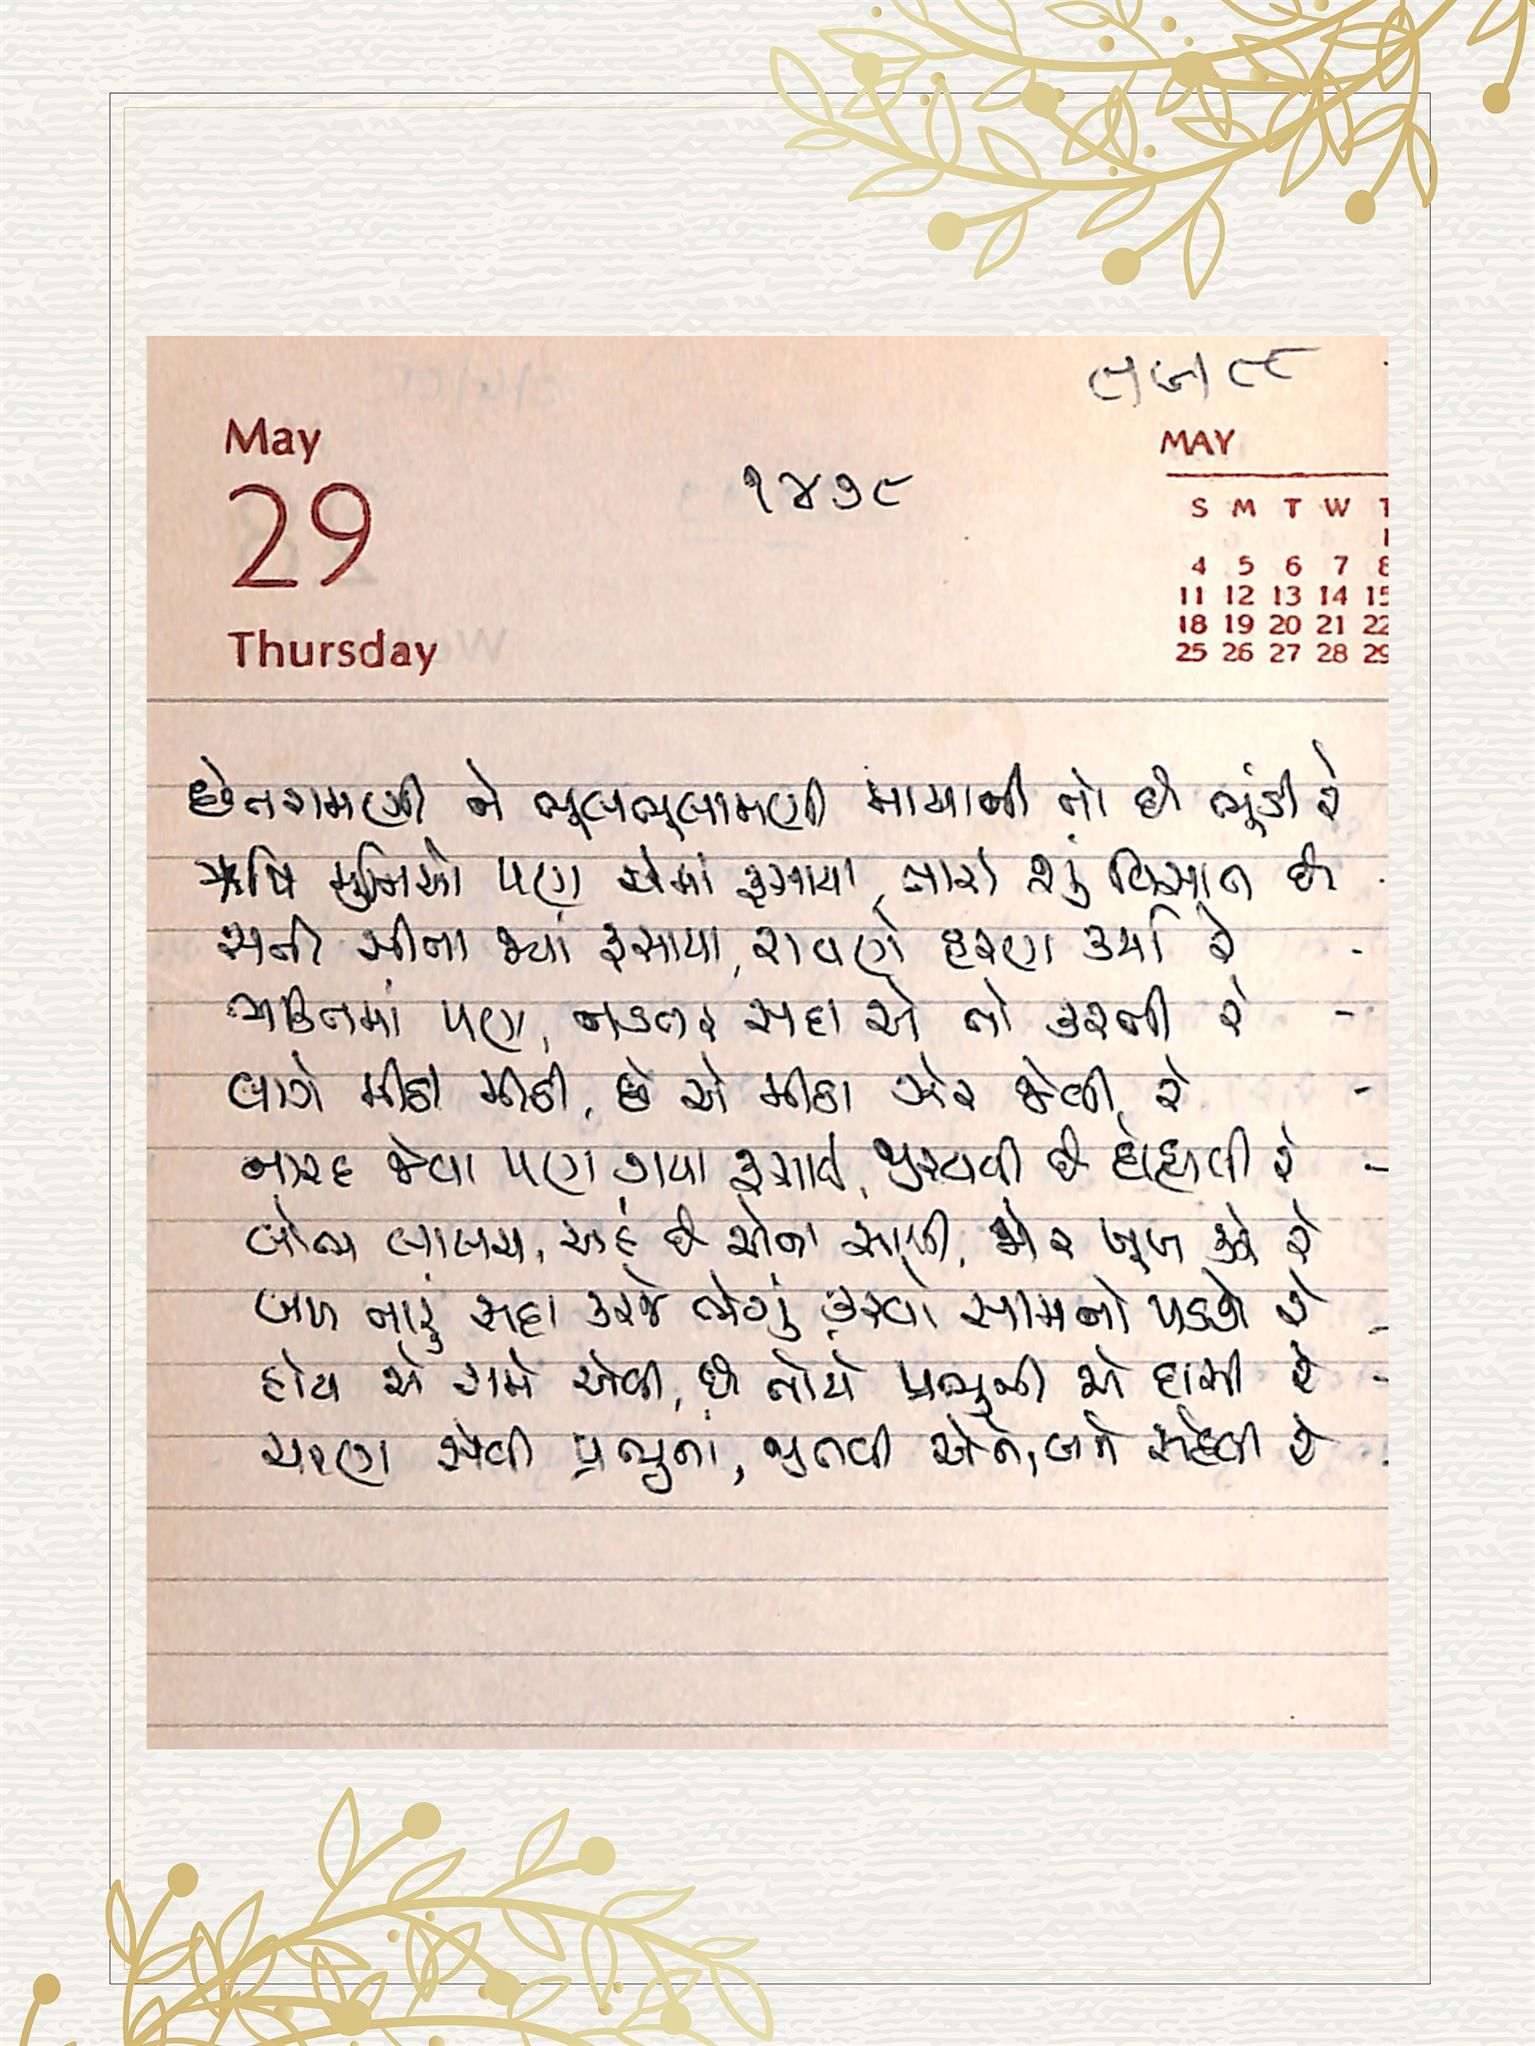 May
29
Thursday
૧૪૭૯
MAY
S M T W T
1
4 5 6 7 8
11 12 13 14 15
18 19 20 21 22
25 26 27 28 29
છેતરામણી ને ભૂલભૂલામણી માયાની તો છે ભૂંડી રે
ઋષિ મુનિઓ પણ એમાં ફસાયા, તારી શું વિસાત છે
સતી સીતા જ્યાં ફસાયા, રાવણે હરણ કર્યા રે
ભક્તિમાં પણ, નડતર સદા એ તો કરતી રે
લાગે મીઠી મીઠી, છે એ મીઠા ઝેર જેવી રે
નારદ જેવા પણ ગયા ફસાઈ, જીરવવી છે દોહ્યલી રે
લોભ લાલચ, અહં છે એના સાથી, જોર ખૂબ કરે રે
બળ તારું સદા કરજે ભેગું કરવો સામનો પડશે રે
હોય એ ગમે એવી, છે તોયે પ્રભુની એ દાસી રે
ચરણ સેવી પ્રભુનાં, જીતવી એને, બને સહેલી રે